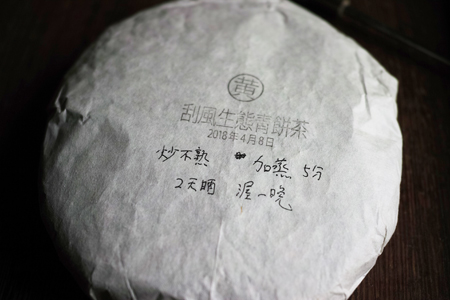 黄
刮風生態青餅茶
2018年4月8日
炒不熟 加蒸 5分
2天晒 渥一晚